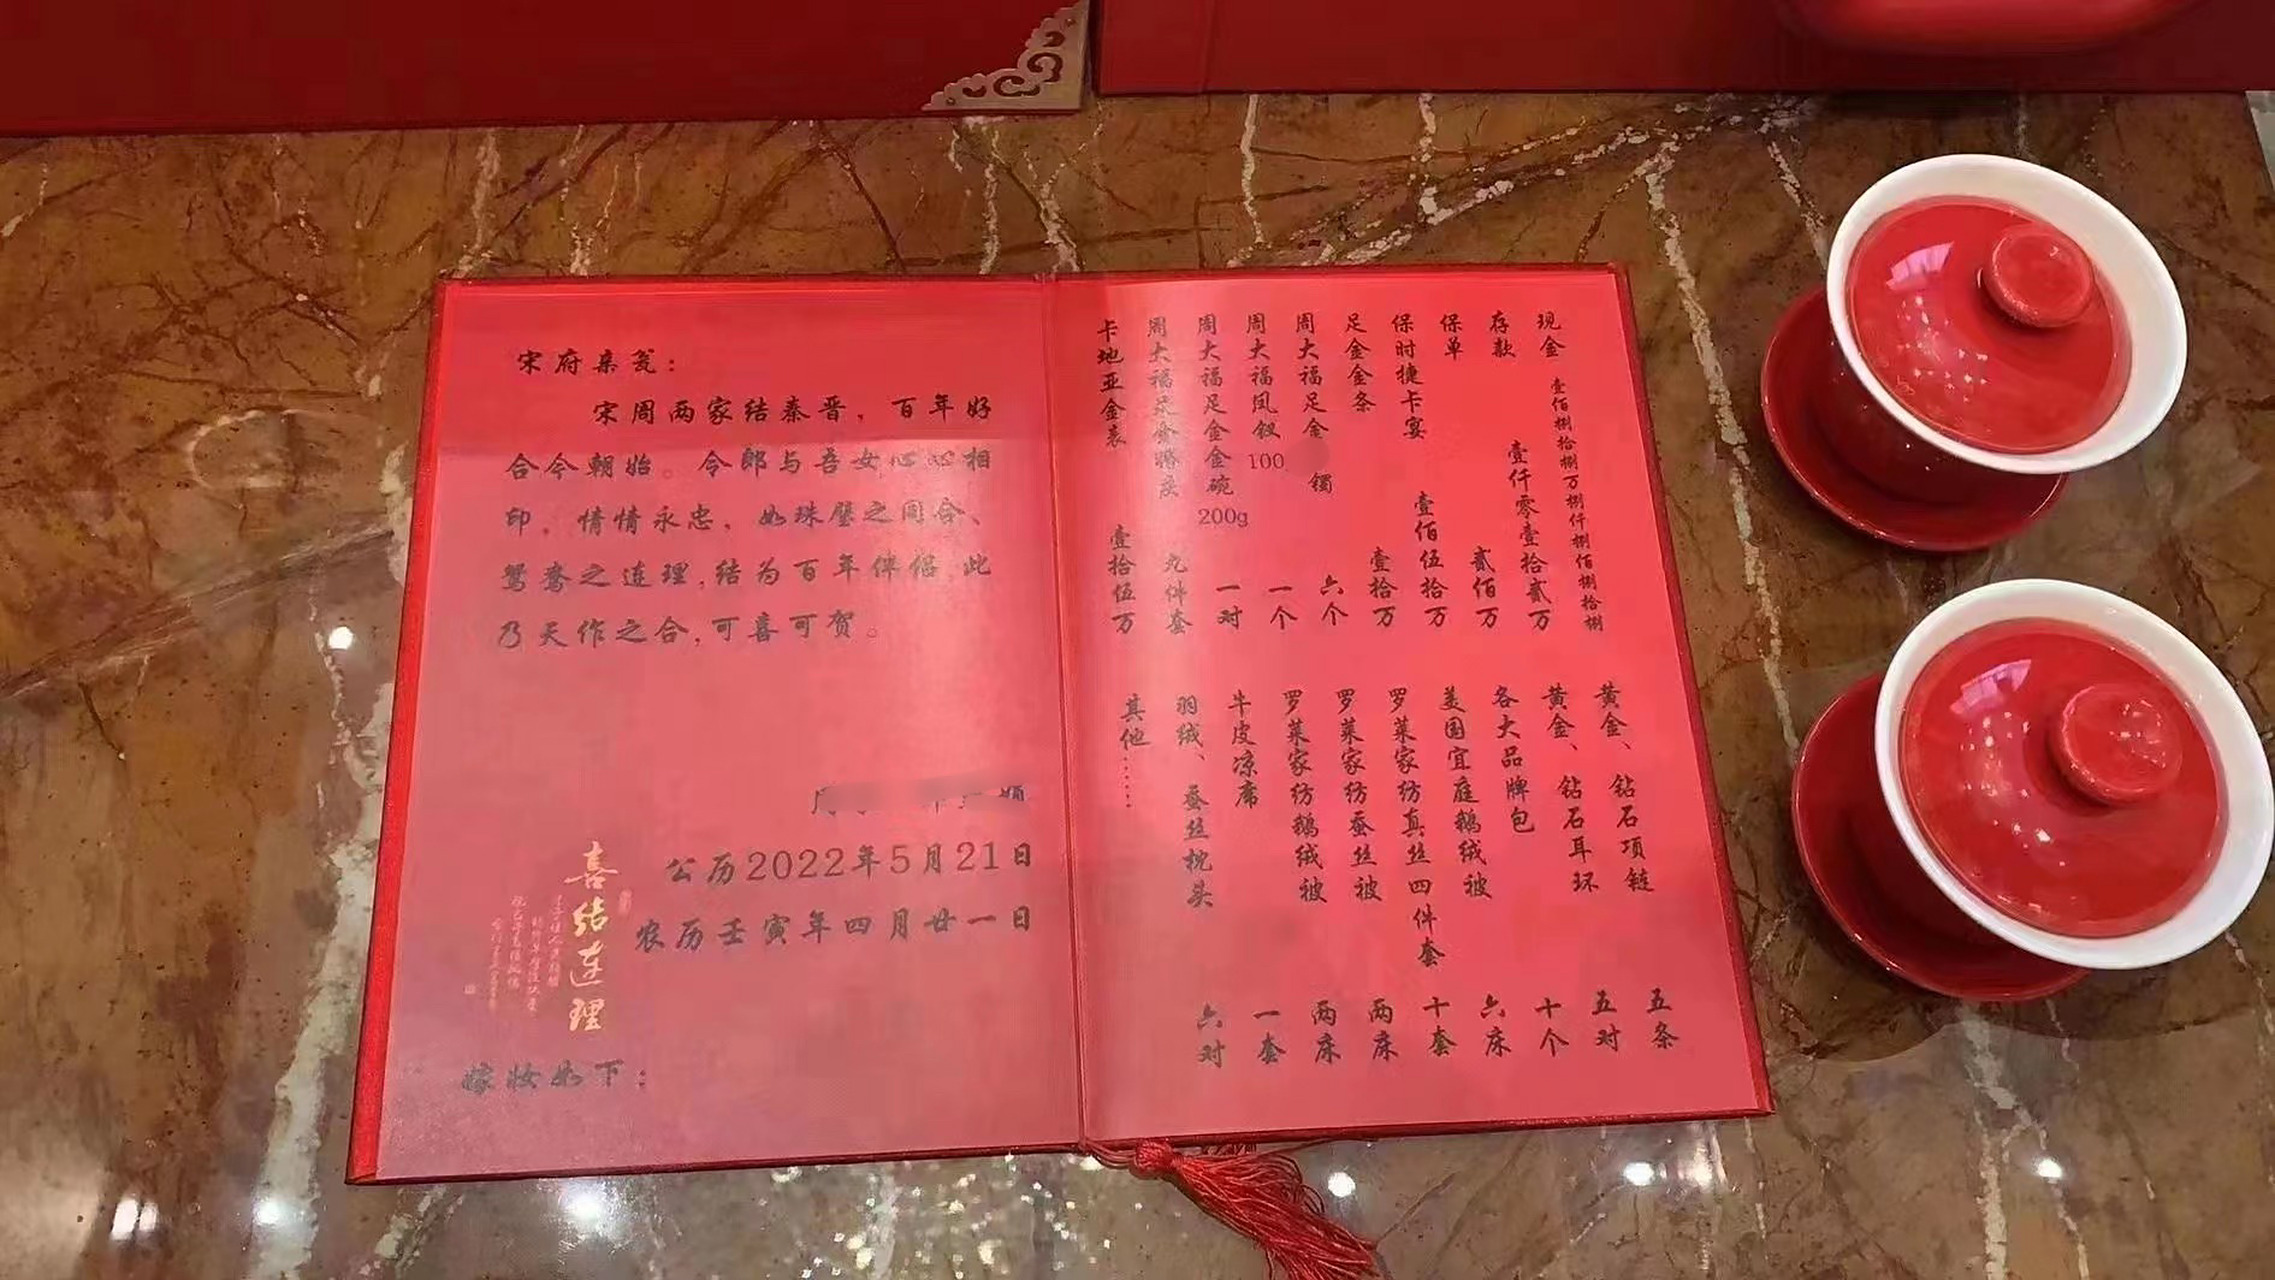 宋府亲瓮：
宋周两家结秦晋，百年好
合今朝始。令郎与吾女心心相
印，情情永忠，如珠璧之同合、
鸳鸯之连理,结为百年伴侣,此
乃天作之合,可喜可贺。
娟
公历2022年5月21日
农历壬寅年四月廿一日
喜结连理
嫁妆如下：
现金 壹佰捌拾捌万捌仟捌佰捌拾捌
存款 壹仟零壹拾贰万
保单 贰佰万
保时捷卡宴 壹佰伍拾万
足金金条 壹拾万
周大福足金 镯 六个
周大福凤钗100 一个
周大福足金金碗200g 一对
周大福足金婚庆 九件套
卡地亚金表 壹拾伍万
黄金、钻石项链 五条
黄金、钻石耳环 五对
各大品牌包 十个
美国宜庭鹅绒被 六床
罗莱家纺真丝四件套 十套
罗莱家纺蚕丝被 两床
罗莱家纺鹅绒被 两床
牛皮凉席 一套
羽绒、蚕丝枕头 六对
其他……